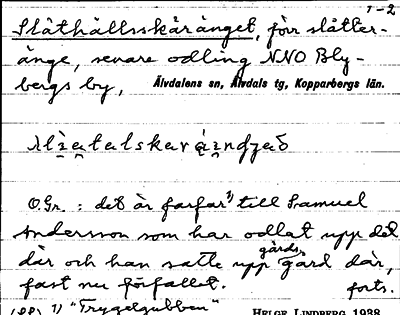 1-2
Släthällsskäränget, förr slåtter-
änge, senare odling NNO Bly-
bergs by, Älvdalens sn, Älvdals tg, Kopparbergs län.
O.Gr. : det är farfar 1) till Samuel
Andersson som har odlat upp det
där och han satte upp gärds gård där,
fast nu förfallet. forts.
1) "Trygelgubben" HELGE LINDBERG 1938